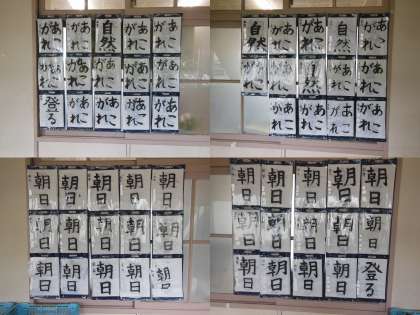 あこがれ あこがれ 自然 あこがれ あこがれ
あこがれ あこがれ あこがれ あこがれ あこがれ
登る あこがれ あこがれ あこがれ あこがれ
自然 あこがれ あこがれ 自然 あこがれ
自然 あこがれ 自然 あこがれ あこがれ
あこがれ あこがれ あこがれ あこがれ
朝日 朝日 朝日 朝日 朝日
朝日 朝日 朝日 朝日 朝日
朝日 朝日 朝日 朝日 朝日
朝日 朝日 朝日 朝日 朝日
朝日 朝日 朝日 朝日 朝日
朝日 朝日 朝日 朝日 登る